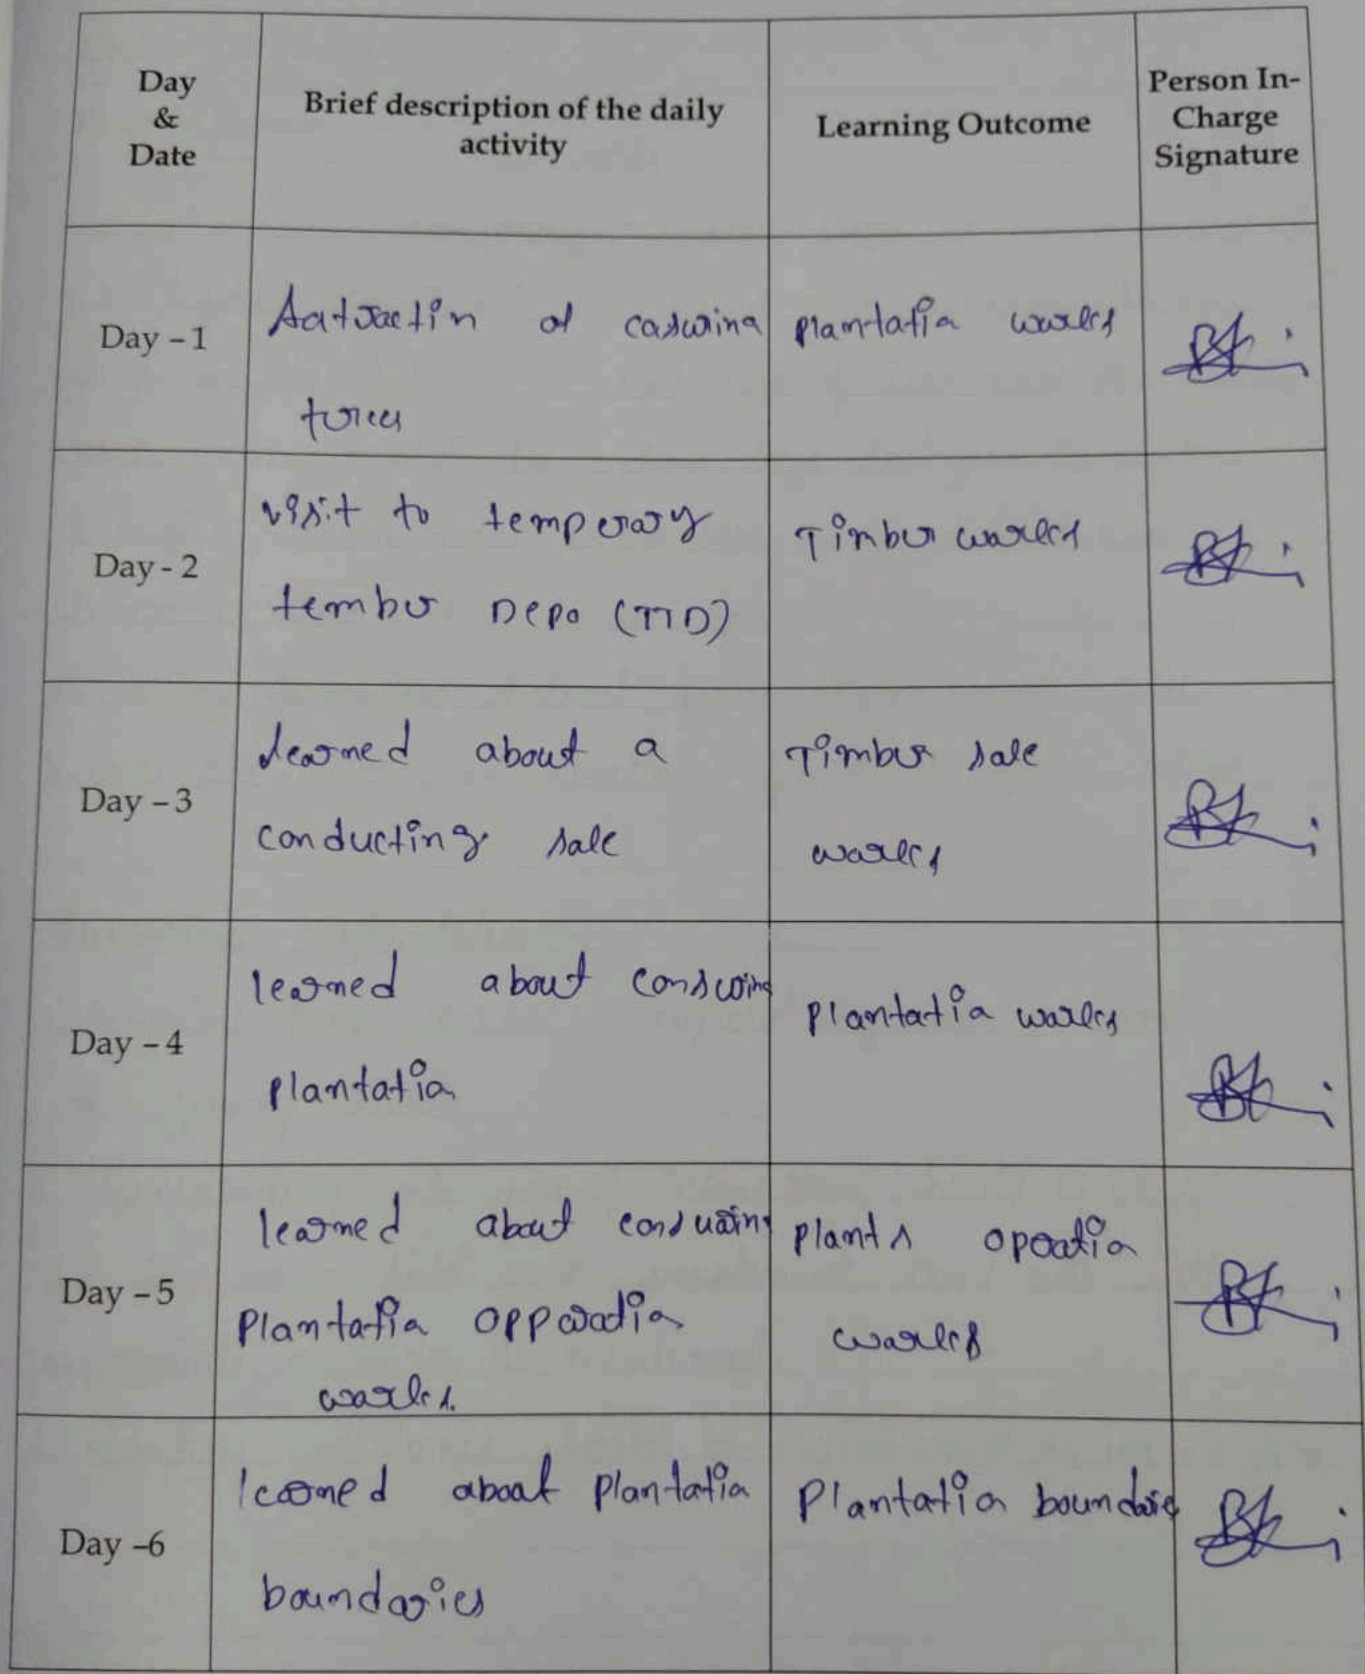 Day
&
Date
Brief description of the daily
activity
Learning Outcome
Person In-
Charge
Signature
Day – 1
of casurina
trees
plantatia works
Day - 2
visit to temperary
tember Depo (TTD)
Timber works
Day – 3
learned about a
conducting sale
Timber sale
works
Day – 4
learned about
plantatia
plantatia works
Day – 5
learned about
plantatia opparatia
works.
plants opratia
works
Day –6
learned about plantatia
boundaries
plantatia boundaries